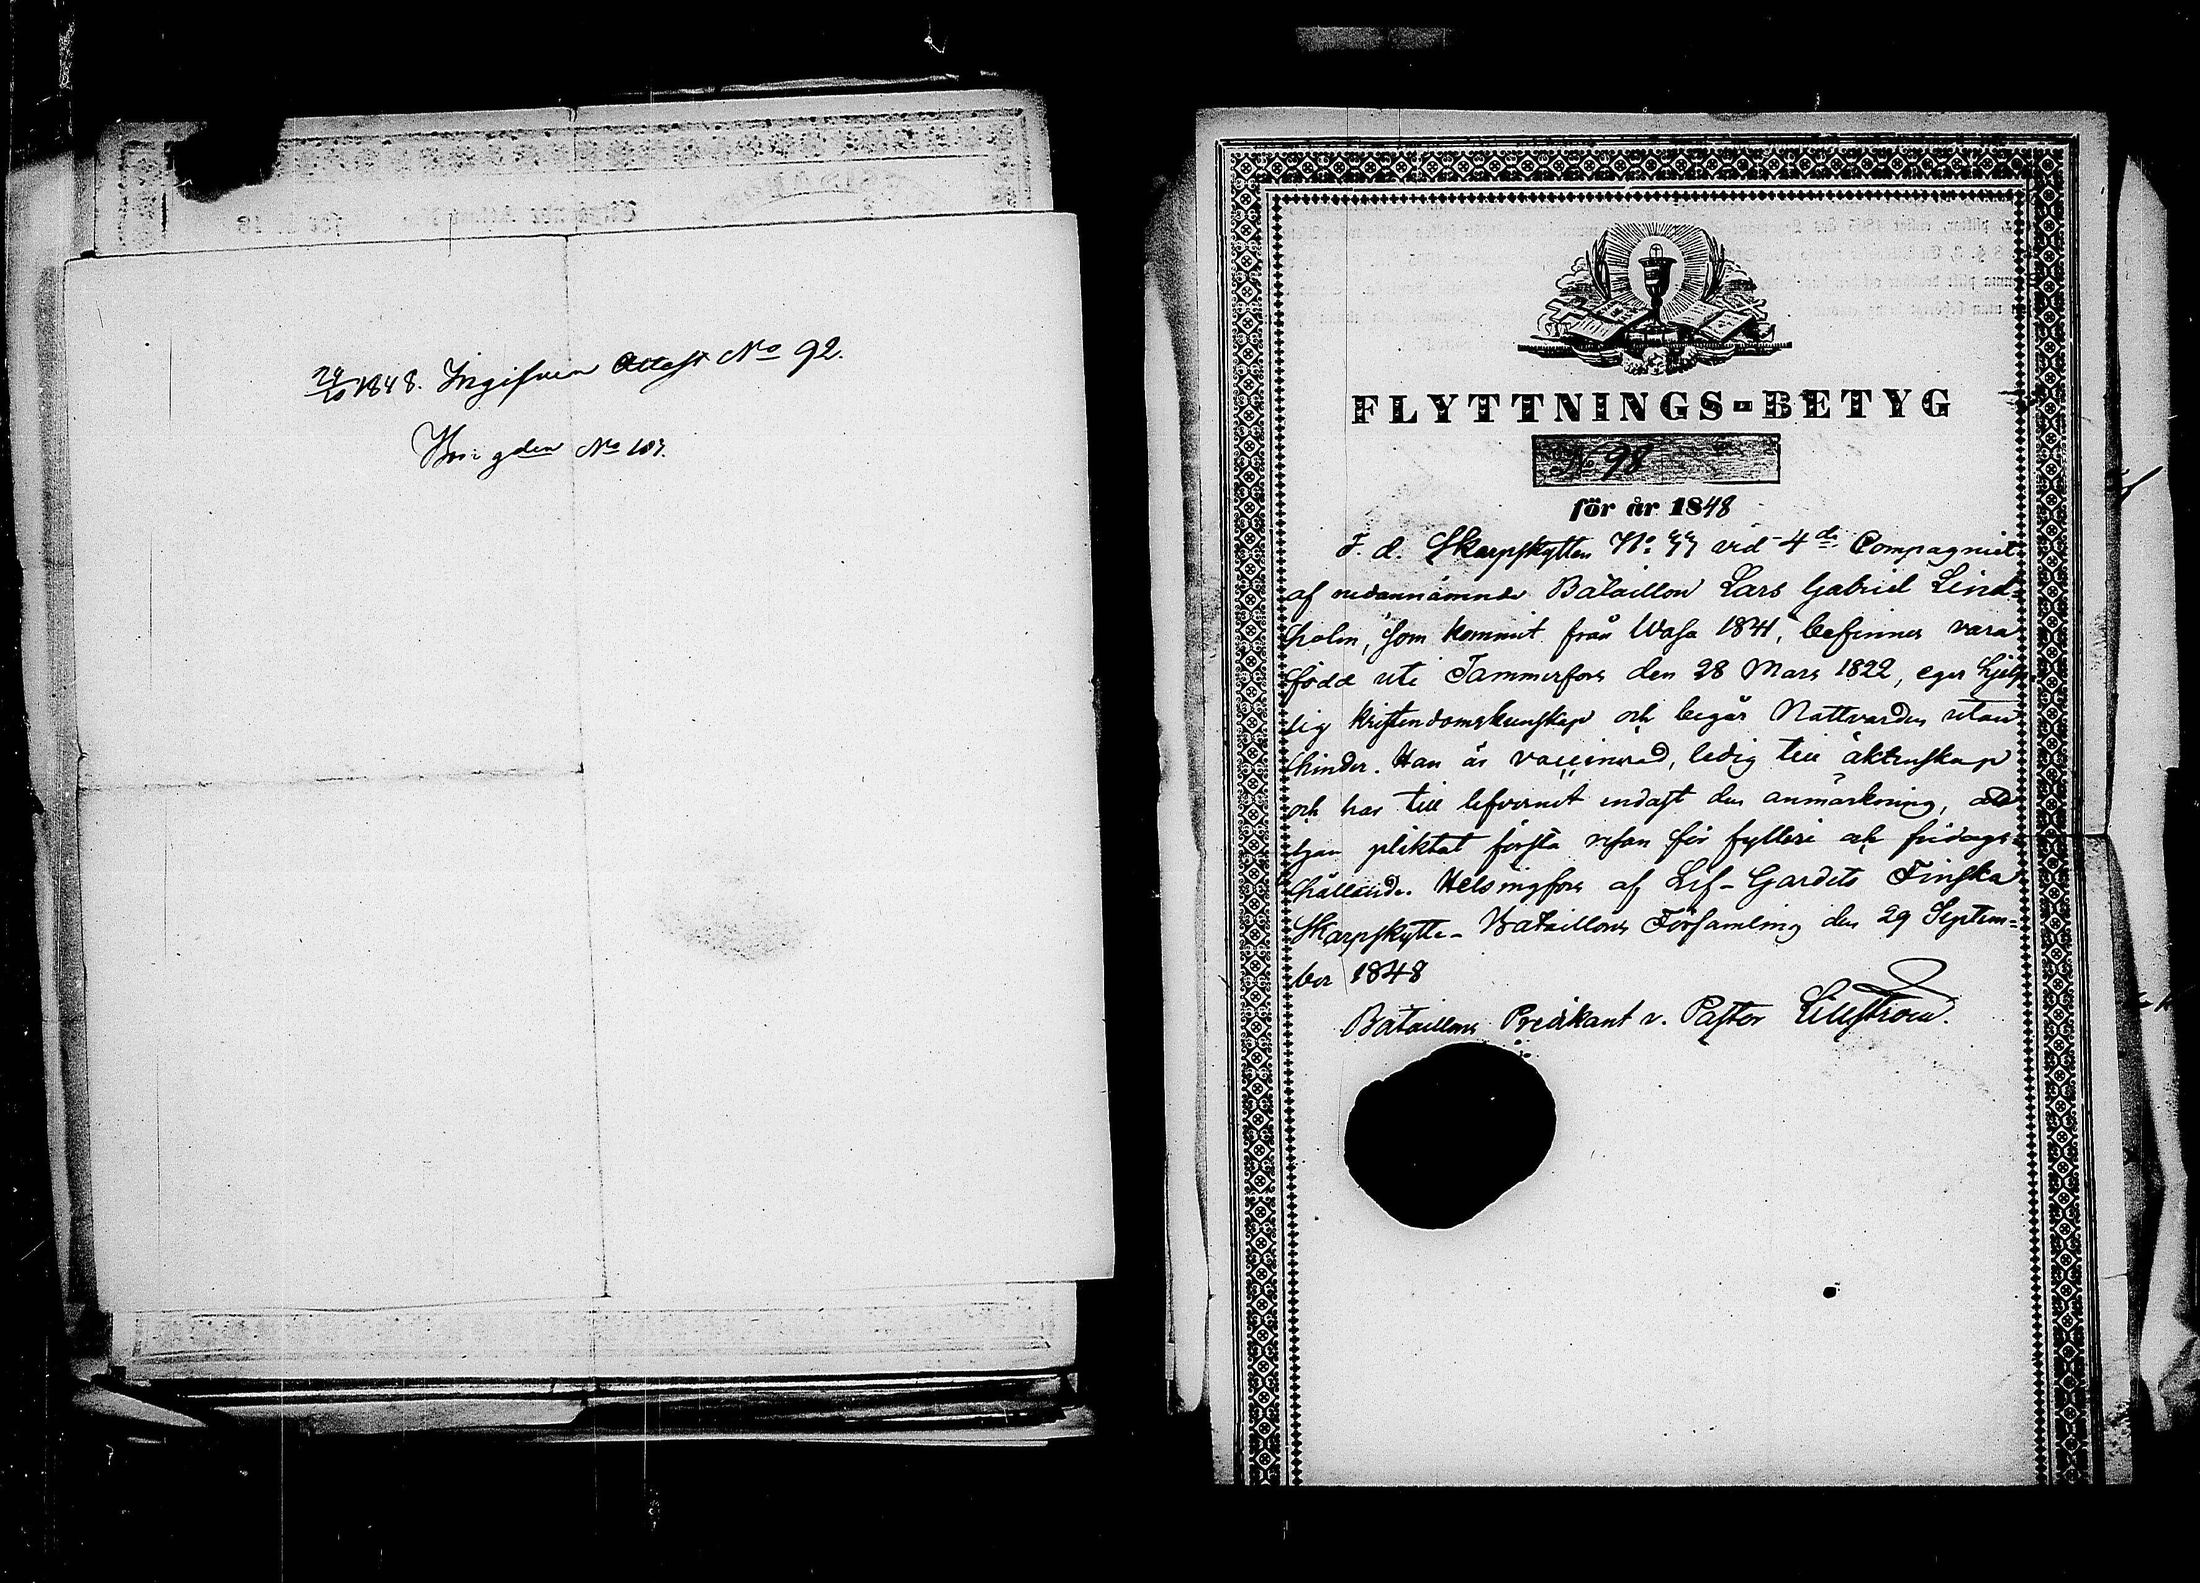 24/10 1848. Ingifven Attest No 92.
No 107.
FLYTTNINGS-BETYG
No 98
för år 1848
F. d. Skarpskytten No 77 vid 4de Compagniet
af nedannämnde Bataillon Lars Gabriel Lind-
holm, som kommit från Wasa 1841, befinnes vara
född uti Tammerfors den 28 Mars 1822, eger hjelp-
lig kristendomskunskap och begår Nattvarden utan
hinder. Han är vaccinerad, ledig till äktenskap
och har till lefvernet endast den anmärkning, att
han pliktat första resan för fylleri och
hållande. Helsingfors af Lif-Gardets Finska
Skarpskytte-Bataillons Församling den 29 Septem-
ber 1848
Bataillons Predikant v. Pastor Lillström.